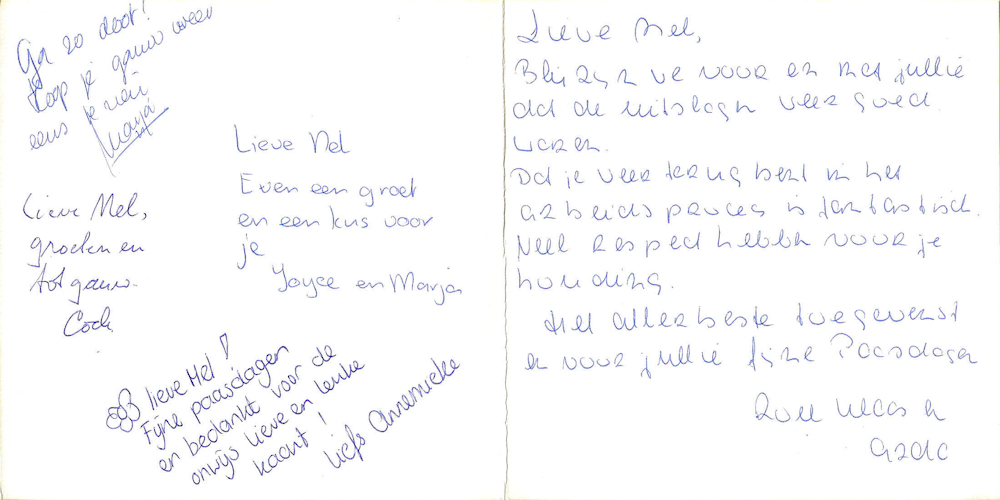 Ga zo door!
Hoop je gauw weer
eens te zien
Marja
Lieve Mel,
groeten en
tot gauw.
Cock
Lieve Mel
Even een groet
en een kus voor
je
Joyce en Marja
Lieve Mel!
Fijne paasdagen
en bedankt voor de
onwijs lieve en leuke
kaart!
Liefs Annemieke
Lieve Mel,
Blij zijn we voor en met jullie
dat de uitslagen weer goed
waren.
Dat je weer terug bent in het
arbeidsproces is fantastisch.
Veel respect hebben voor je
houding.
Het allerbeste toegewenst
en voor jullie fijne Paasdagen